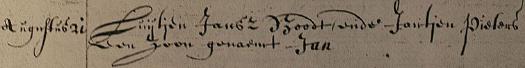 Augustus 21 Luijtjen Jansz Noodt, ende Jantjen Pieters
Een Zoon genaemt - Jan